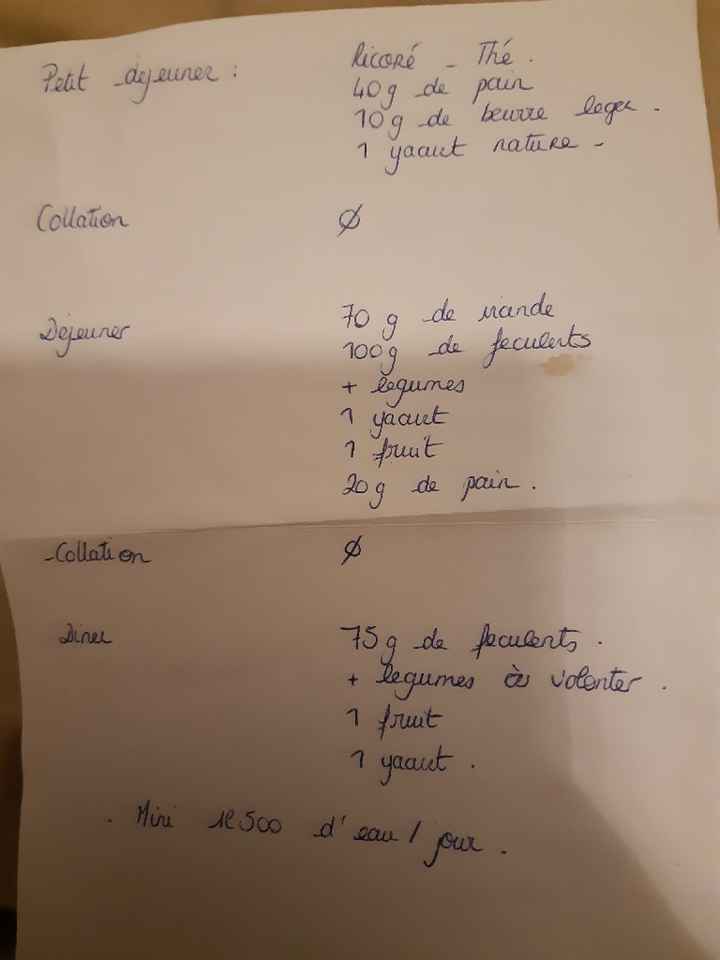 Petit dejeuner : Ricoré - Thé.
40g de pain
10g de beurre leger.
1 yaourt nature -
Collation Ø
Dejeuner 70 g de viande
100g de feculents
+ legumes
1 yaourt
1 fruit
20g de pain.
-Collation Ø
Diner 75g de feculents.
+ legumes à volonter.
1 fruit
1 yaourt.
. Mini 1l500 d'eau / jour.